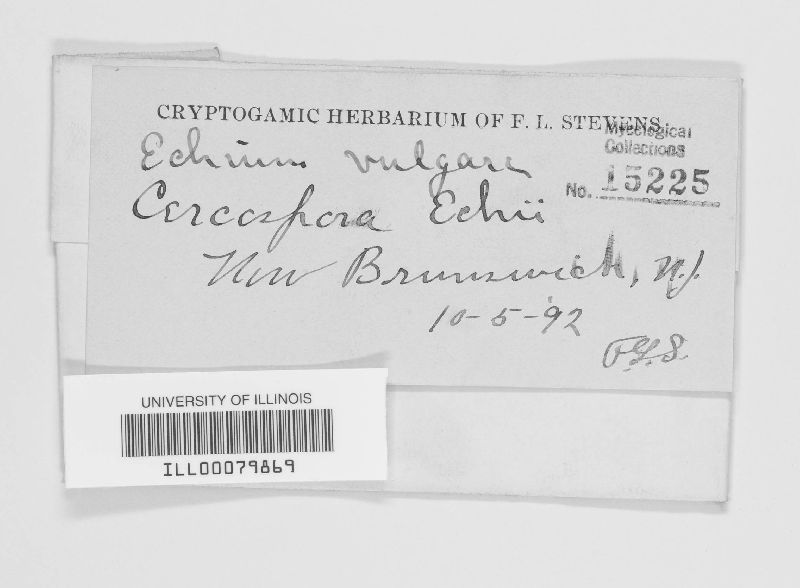 CRYPTOGAMIC HERBARIUM OF F. L. STEVENS.
Mycological
Collections
No. 15225
Echium vulgare
Cercospora Echii
New Brunswick, N.J.
10-5-92
F.L.S.
UNIVERSITY OF ILLINOIS
ILL00079869